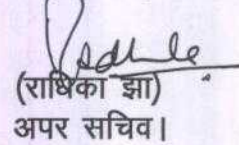 (राधिका झा)
अपर सचिव।